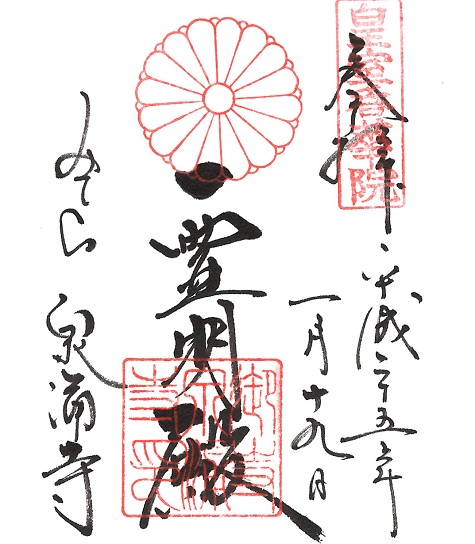 皇室香華院
奉拝
平成二十五年
一月十九日
霊明殿
みてら 泉涌寺